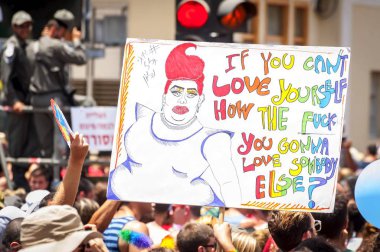 IF YOU CANT
LOVE YOURSELF
HOW THE FUCK
YOU GONNA
LOVE SOMEBODY
ELSE?